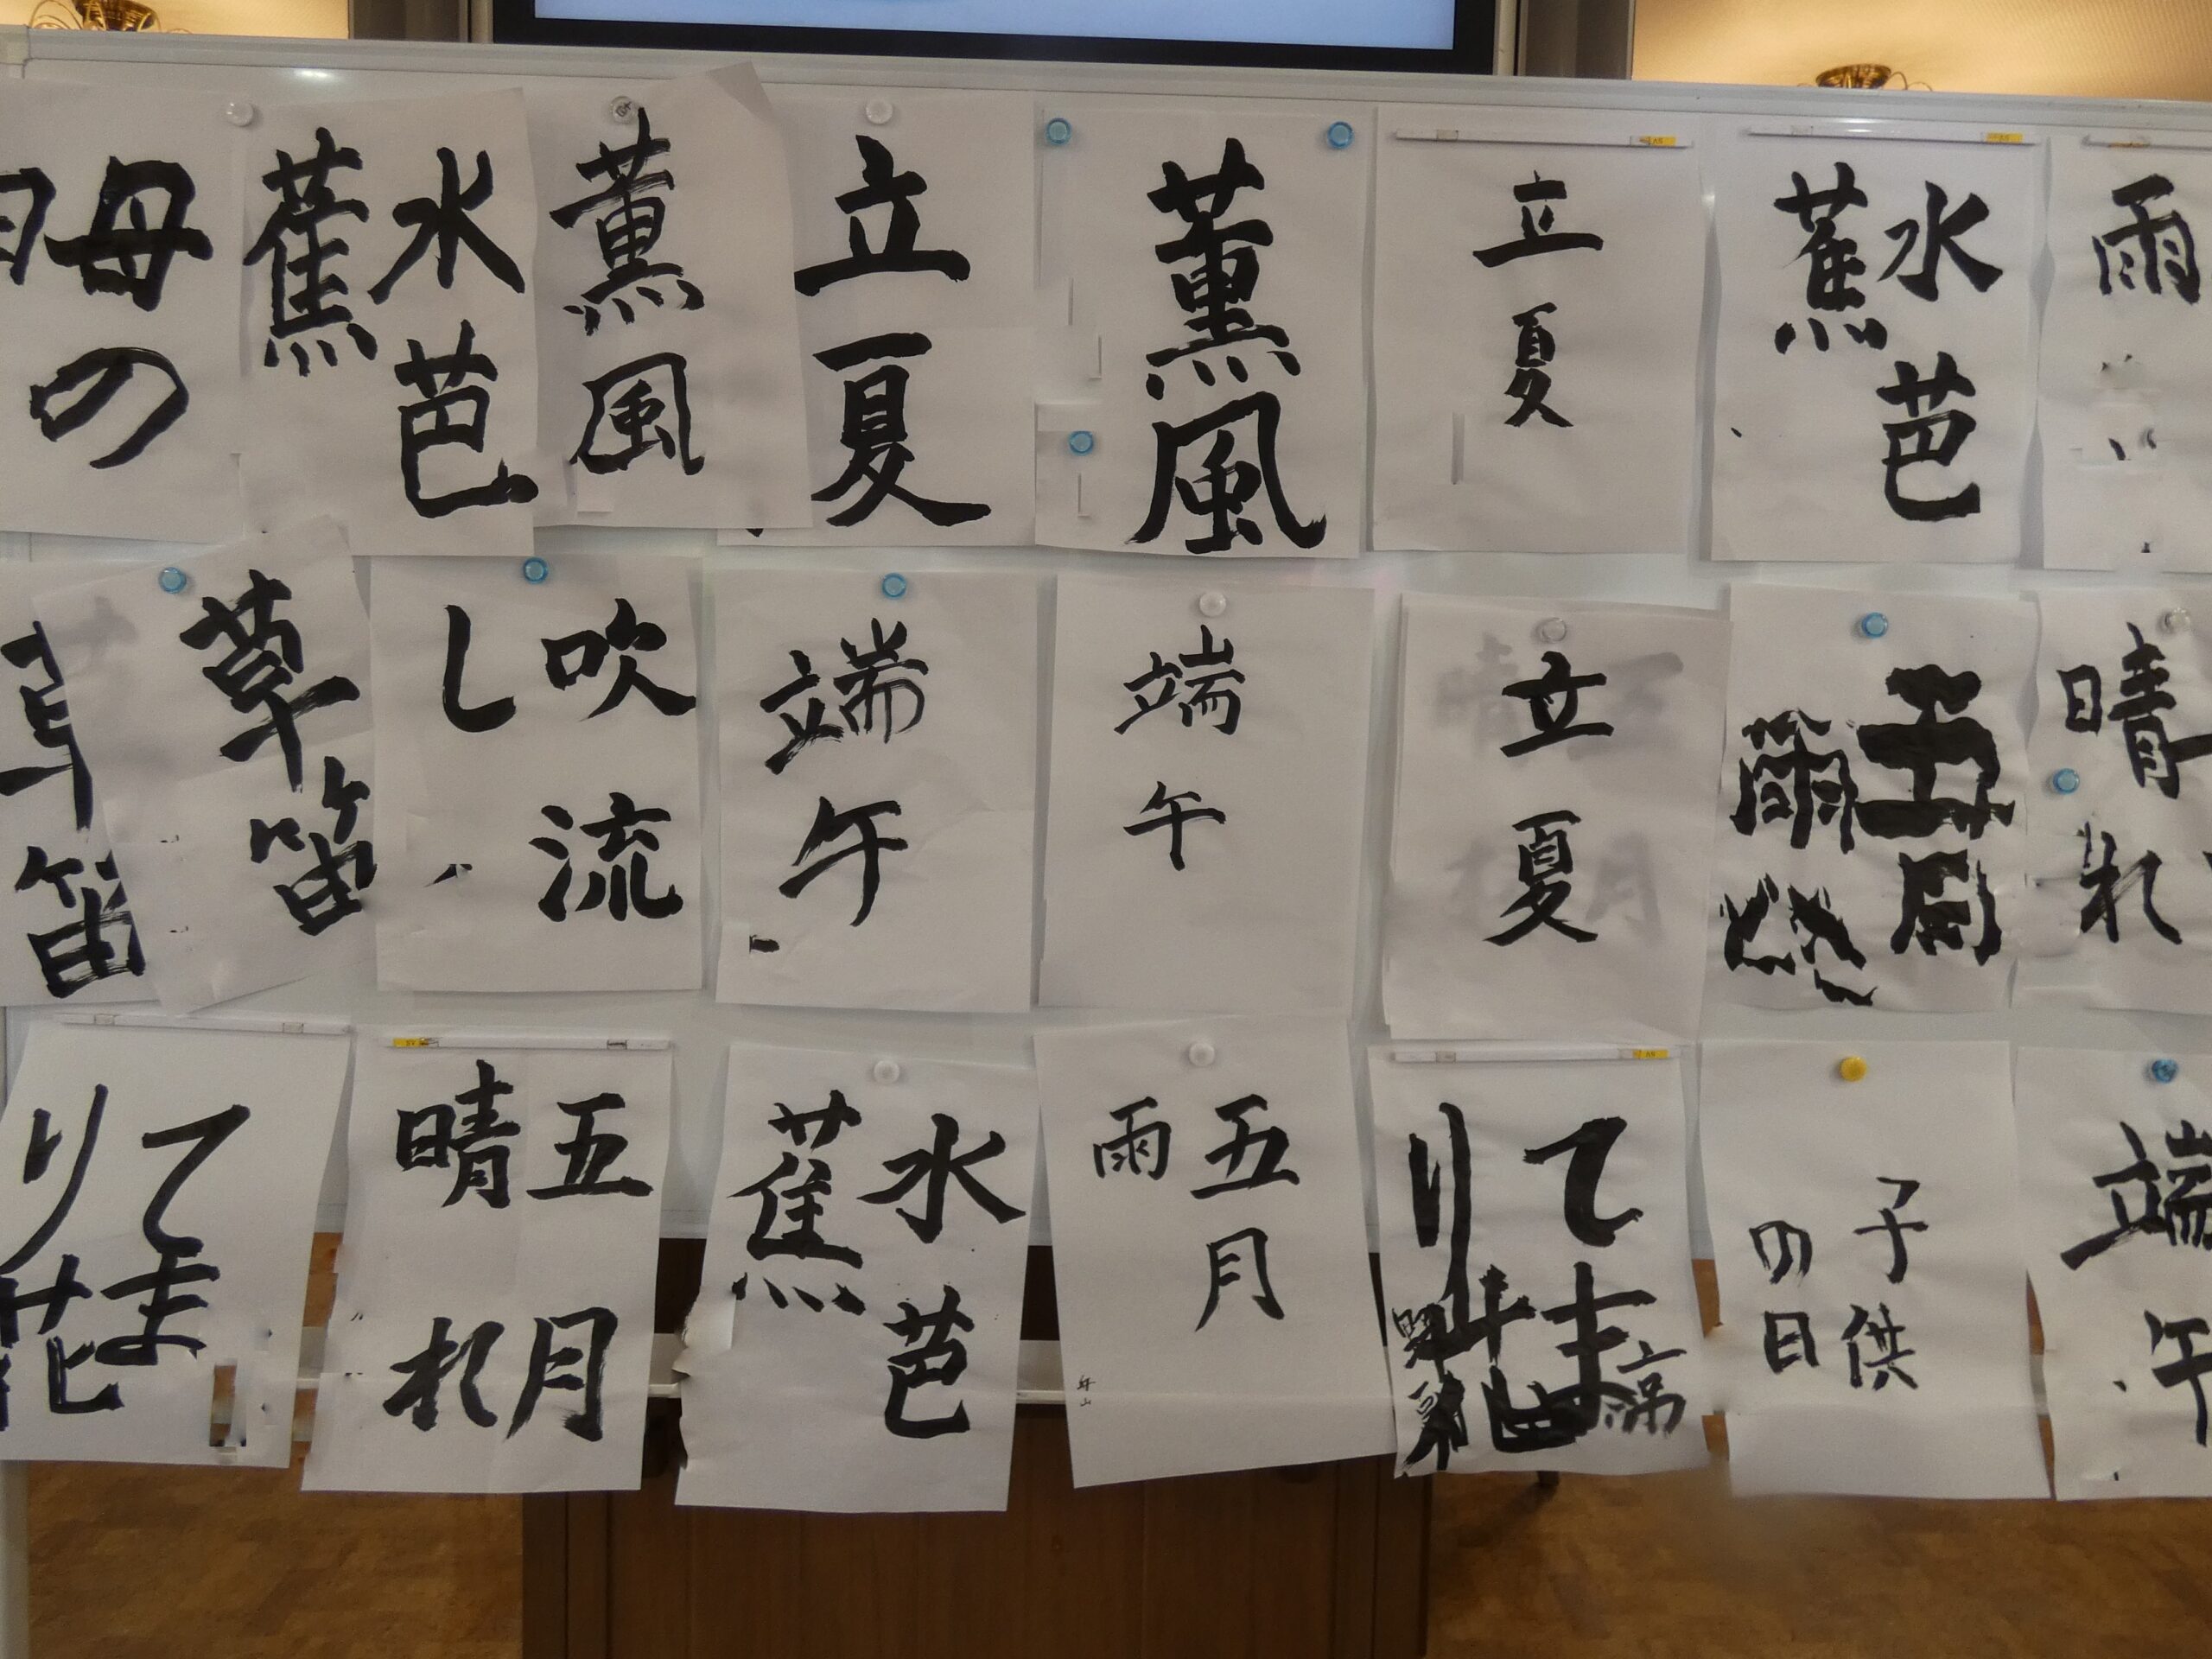 母の
水芭
蕉
薫風
立夏
薫風
立夏
水芭
蕉
雨
草笛
草笛
吹流
し
端午
端午
立夏
晴れ
てま
り花
五月
晴れ
水芭
蕉
五月
雨
てま
り
子供
の日
端午